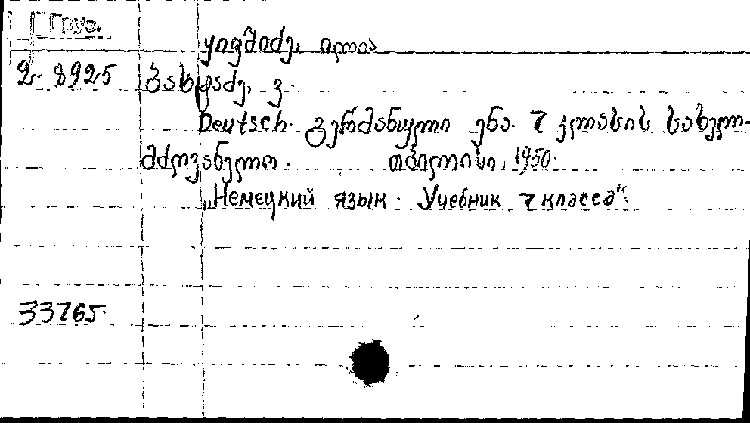 ყიფშიძე, ილია
8925 ბახტაძე, ვ
Deutsch. გერმანული ენა. 7 კლასის სახელ-
მძღვანელო. თბილისი, 1950.
„Немецкий язык. Учебник 7 класса“.
33765